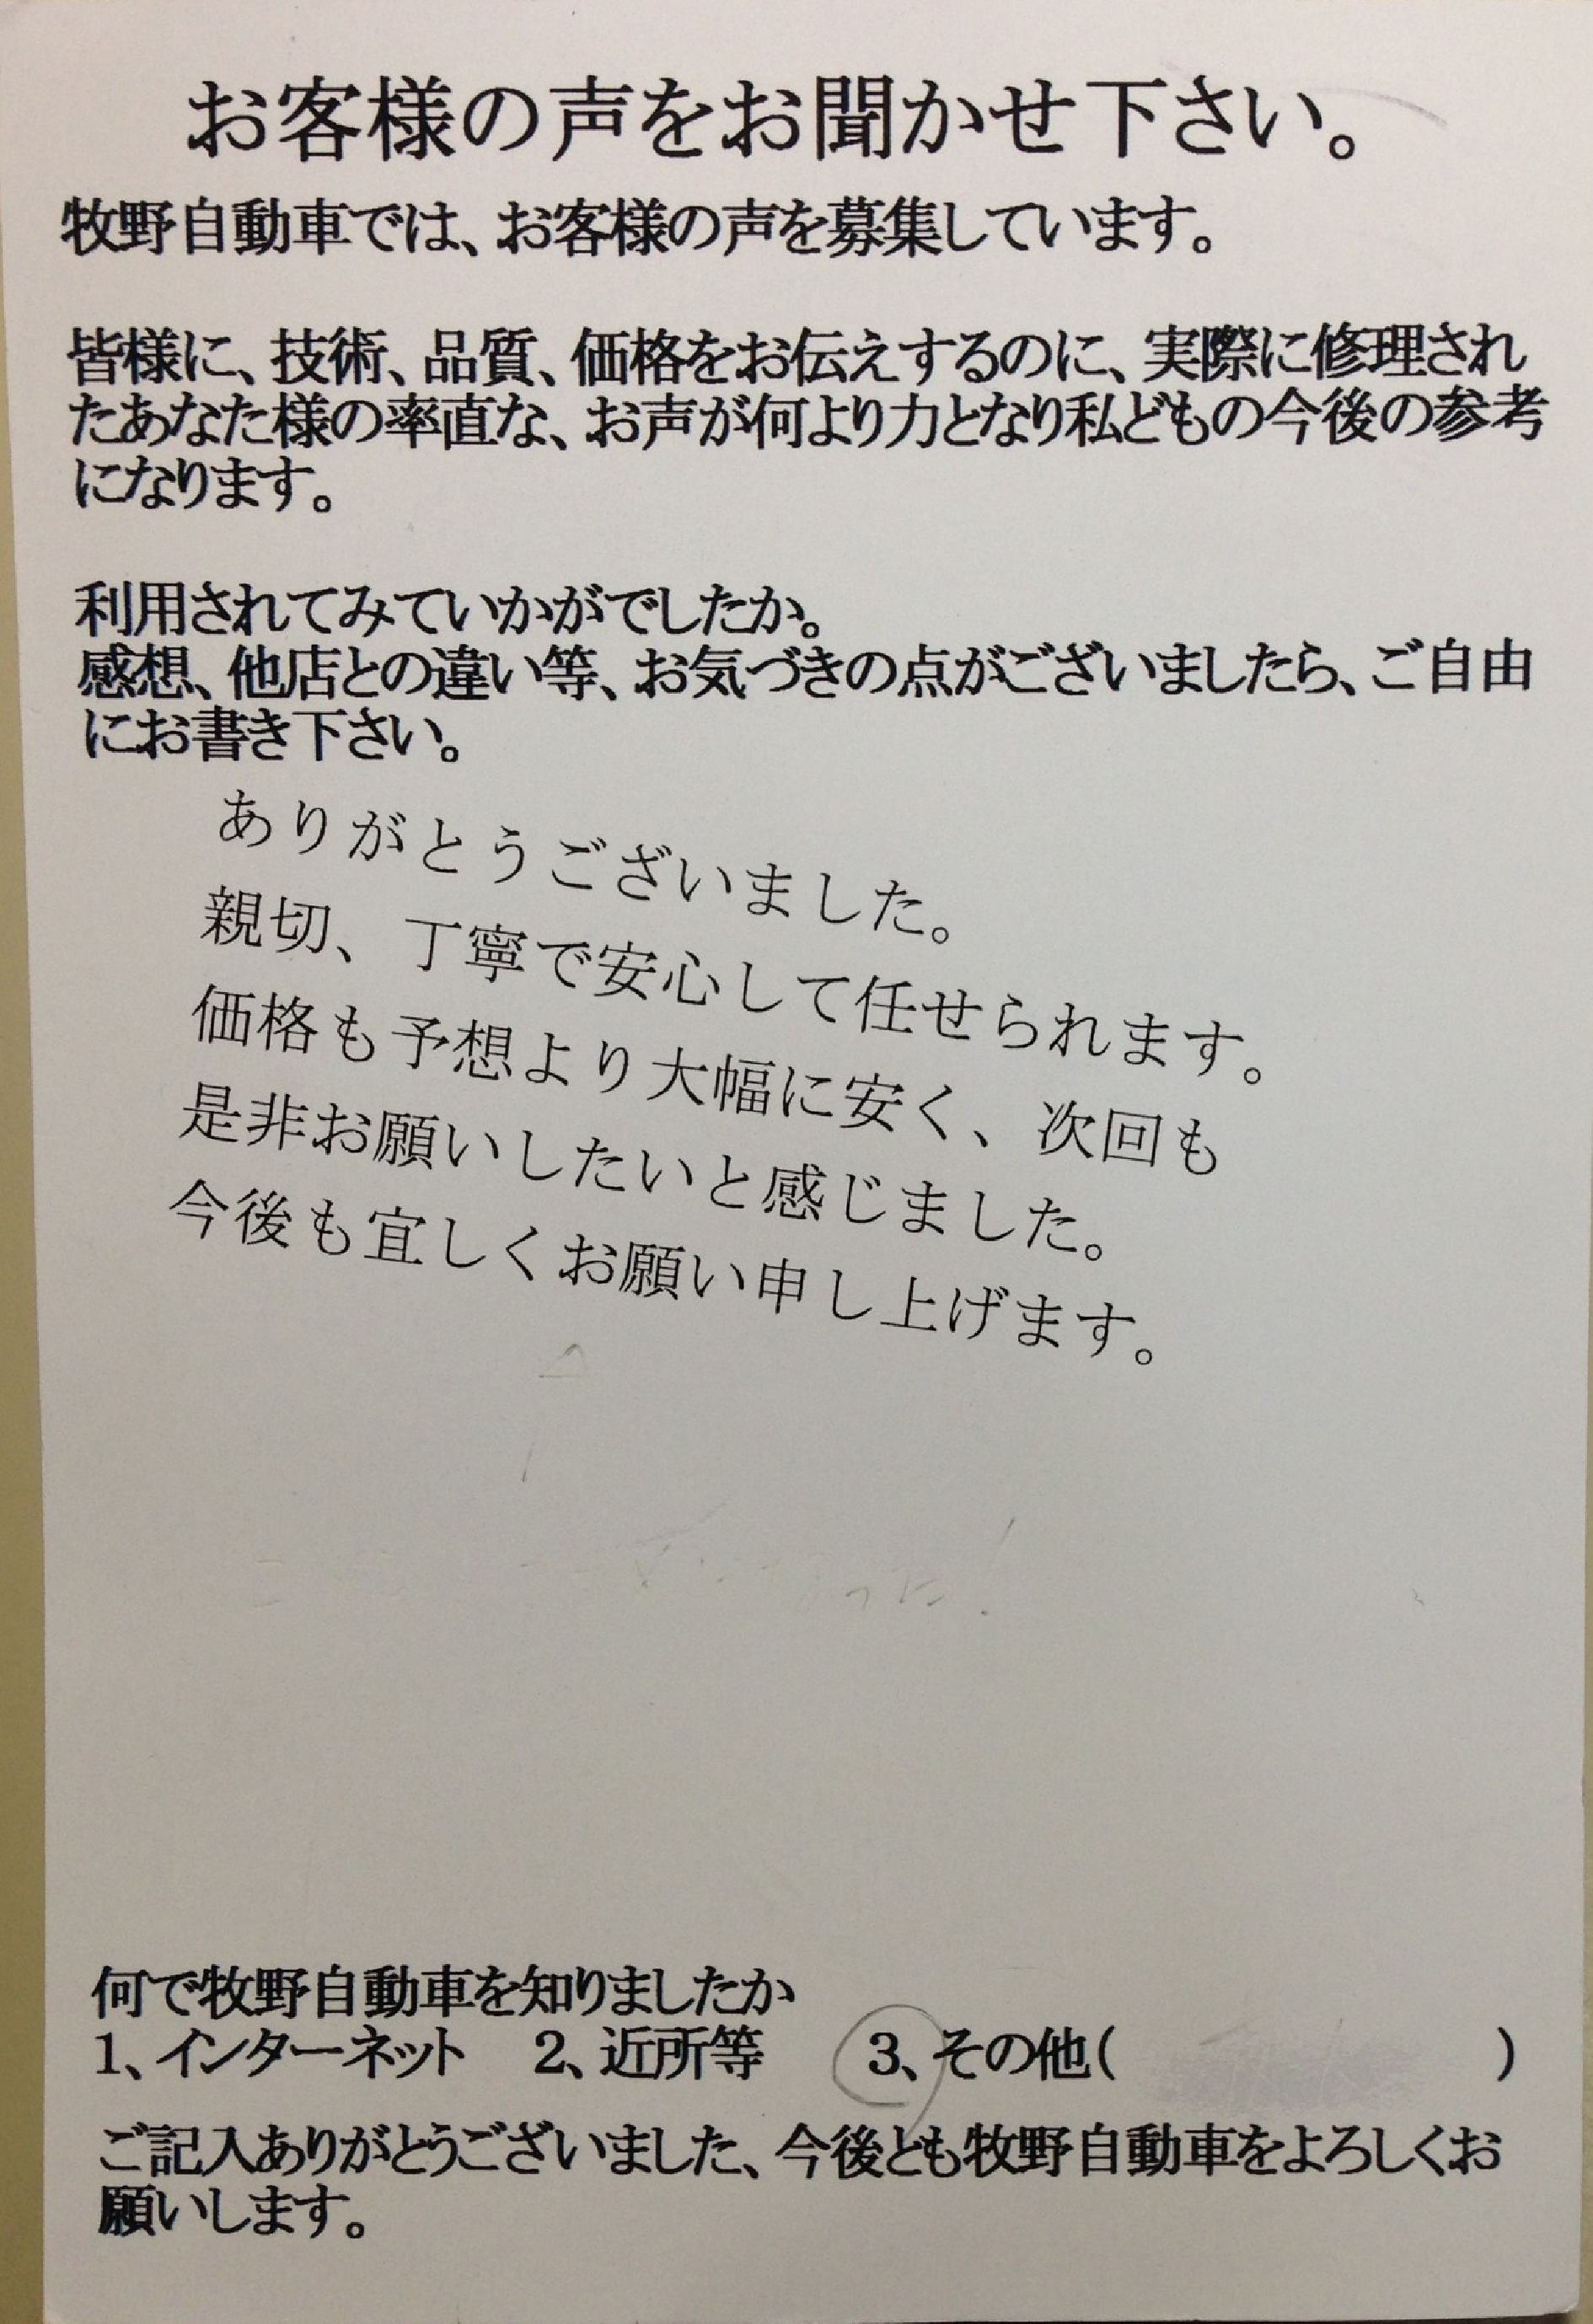 お客様の声をお聞かせ下さい。
牧野自動車では、お客様の声を募集しています。
皆様に、技術、品質、価格をお伝えするのに、実際に修理され
たあなた様の率直な、お声が何より力となり私どもの今後の参考
になります。
利用されてみていかがでしたか。
感想、他店との違い等、お気づきの点がございましたら、ご自由
にお書き下さい。
ありがとうございました。
親切、丁寧で安心して任せられます。
価格も予想より大幅に安く、次回も
是非お願いしたいと感じました。
今後も宜しくお願い申し上げます。
何で牧野自動車を知りましたか
1、インターネット 2、近所等 3、その他( )
ご記入ありがとうございました、今後とも牧野自動車をよろしくお
願いします。